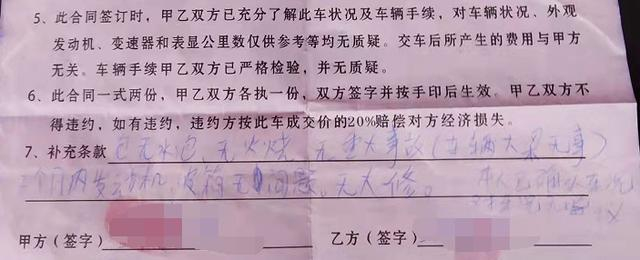 5、此合同签订时，甲乙双方已充分了解此车状况及车辆手续，对车辆状况、外观
发动机、变速器和表显公里数仅供参考等均无质疑。交车后所产生的费用与甲方
无关。车辆手续甲乙双方已严格检验，并无质疑。
6、此合同一式两份，甲乙双方各执一份，双方签字并按手印后生效。甲乙双方不
得违约，如有违约，违约方按此车成交价的20%赔偿对方经济损失。
7、补充条款 无水泡、无火烧、无重大事故（车辆大梁无事）
个月内发动机，波箱无问题。无大修。 本人已确认车况
对车况无异议
甲方（签字） 乙方（签字）